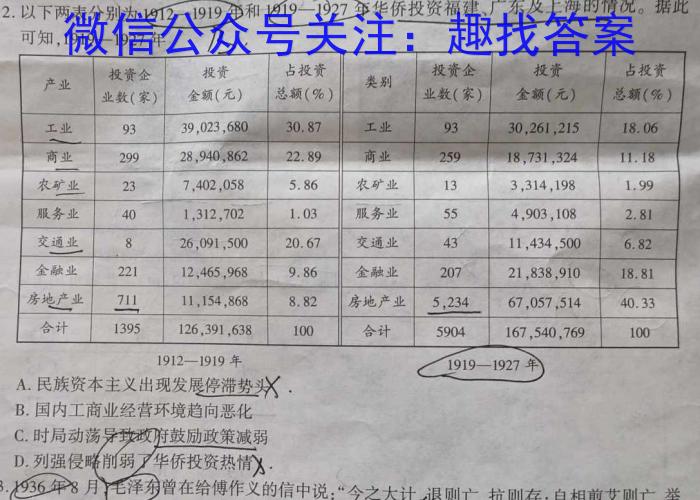 2. 以下两表分别为1912—1919年和1919—1927年华侨投资福建、广东及上海的情况。据此
可知,1919—1927年
微信公众号关注：趣找答案
产业 投资企业数(家) 投资金额(元) 占投资总额(%) 类别 投资企业数(家) 投资金额(元) 占投资总额(%)
工业 93 39,023,680 30.87 工业 93 30,261,215 18.06
商业 299 28,940,862 22.89 商业 259 18,731,324 11.18
农矿业 23 7,402,058 5.86 农矿业 13 3,314,198 1.99
服务业 40 1,312,702 1.03 服务业 55 4,903,108 2.81
交通业 8 26,091,500 20.67 交通业 43 11,434,500 6.82
金融业 221 12,465,968 9.86 金融业 207 21,838,910 18.81
房地产业 711 11,154,868 8.82 房地产业 5,234 67,057,514 40.33
合计 1395 126,391,638 100 合计 5904 167,540,769 100
1912—1919年 1919—1927年
A. 民族资本主义出现发展停滞势头
B. 国内工商业经营环境趋向恶化
C. 时局动荡导致政府鼓励政策减弱
D. 列强侵略削弱了华侨投资热情
3. 1936年8月,毛泽东曾在给傅作义的信中说:“今之大计,退则亡,抗则存;自相煎艾则亡,举